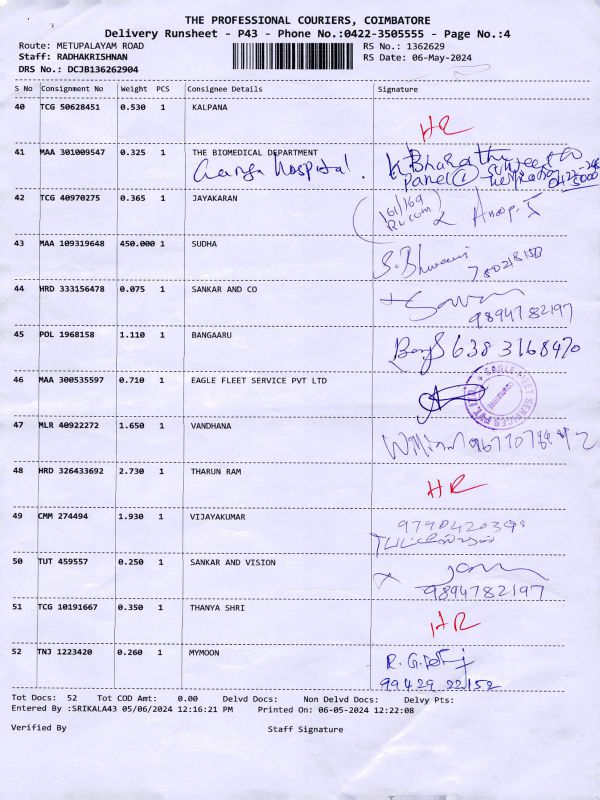 THE PROFESSIONAL COURIERS, COIMBATORE
Delivery Runsheet - P43 - Phone No.:0422-3505555 - Page No.:4
Route: METUPALAYAM ROAD RS No.: 1362629
Staff: RADHAKRISHNAN RS Date: 06-May-2024
DRS No.: DCJB136262904
S No Consignment No Weight PCS Consignee Details Signature
40 TCG 50628451 0.530 1 KALPANA
HR
41 MAA 301009547 0.325 1 THE BIOMEDICAL DEPARTMENT
Ganga Hospital.
42 TCG 40970275 0.365 1 JAYAKARAN
161/169
43 MAA 109319648 450.000 1 SUDHA
S. Bhuvani
44 HRD 333156478 0.075 1 SANKAR AND CO
9894782197
45 POL 1968158 1.110 1 BANGAARU
638 3168470
46 MAA 300535597 0.710 1 EAGLE FLEET SERVICE PVT LTD
47 MLR 40922272 1.650 1 VANDHANA
48 HRD 326433692 2.730 1 THARUN RAM
HR
49 CMM 274494 1.930 1 VIJAYAKUMAR
50 TUT 459557 0.250 1 SANKAR AND VISION
9894782197
51 TCG 10191667 0.350 1 THANYA SHRI
HR
52 TNJ 1223420 0.260 1 MYMOON
99429 22152
Tot Docs: 52 Tot COD Amt: 0.00 Delvd Docs: Non Delvd Docs: Delvy Pts:
Entered By :SRIKALA43 05/06/2024 12:16:21 PM Printed On: 06-05-2024 12:22:08
Verified By Staff Signature